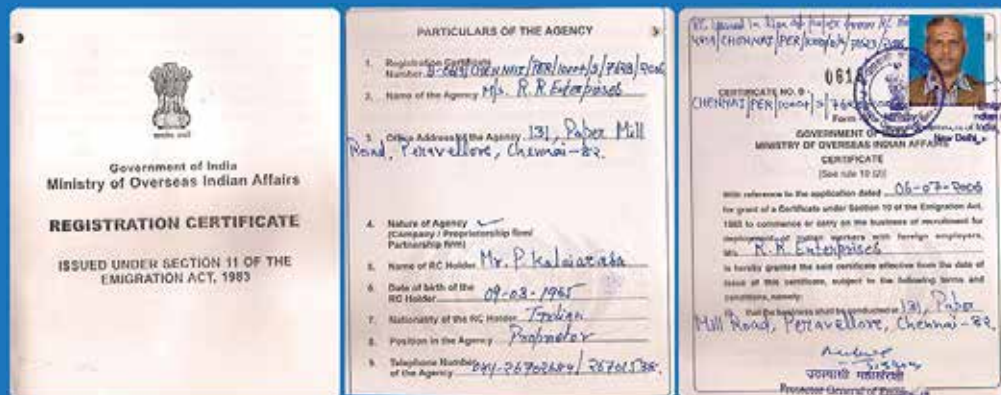 Government of India
Ministry of Overseas Indian Affairs
REGISTRATION CERTIFICATE
ISSUED UNDER SECTION 11 OF THE
EMIGRATION ACT, 1983
PARTICULARS OF THE AGENCY
1. Registration Certificate
Number
2. Name of the Agency M/s. R.R Enterprises
3. Office Address of the Agency 131, Paper Mill
Road, Peravellore, Chennai-82.
4. Nature of Agency
(Company / Proprietorship firm/
Partnership firm)
5. Name of RC Holder Mr. P.
6. Date of birth of the
RC Holder 09-03-1965
7. Nationality of the RC Holder Indian
8. Position in the Agency Proprietor
9. Telephone Number
of the Agency
CERTIFICATE NO. B
Form
New Delhi
GOVERNMENT OF
MINISTRY OF OVERSEAS INDIAN AFFAIRS
CERTIFICATE
[See rule 10 (2)]
With reference to the application dated 06-07-2006
for grant of a Certificate under Section 10 of the Emigration Act,
1983 to commence or carry on the business of recruitment for
deployment of Indian workers with foreign employers,
M/s. R.R. Enterprises
is hereby granted the said certificate effective from the date of
issue of this certificate, subject to the following terms and
conditions, namely:
that the business shall be conducted at 131, Paper
Mill Road, Peravellore, Chennai-82.